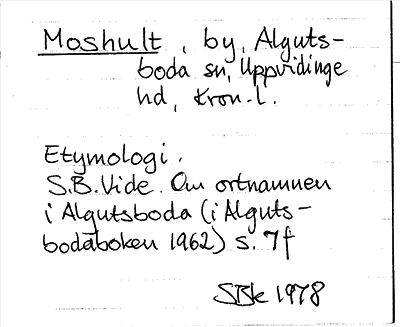 Moshult, by, Alguts-
boda sn, Uppvidinge
hd, Kron. l.
Etymologi.
S.B.Vide. Om ortnamnen
i Algutsboda (i Alguts-
bodaboken 1962) s. 7f
SBk 1978